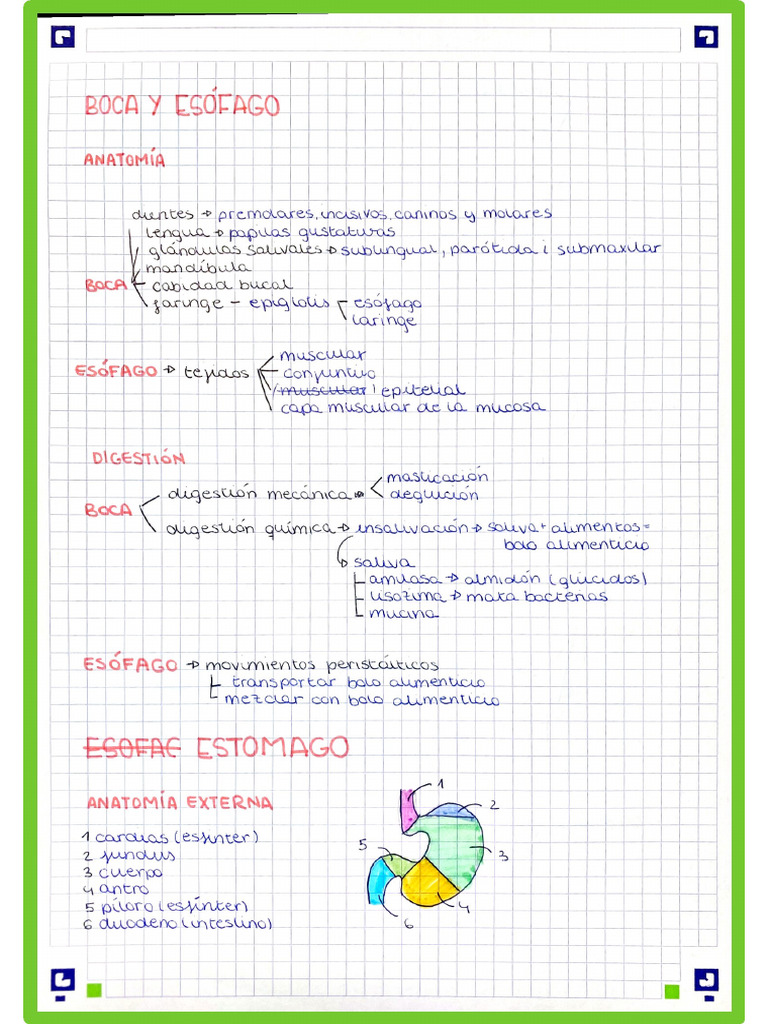 BOCA Y ESÓFAGO
ANATOMÍA
dientes → premolares, incisivos, caninos y molares
lengua → papilas gustaturas
glándulas salivales → sublingual, parótida i submaxilar
mandíbula
BOCA cabidad bucal
faringe - epiglotis esófago
laringe
muscular
ESÓFAGO → tejidos conjuntivo
muscular epitelial
capa muscular de la mucosa
DIGESTIÓN
masticación
digestión mecánica → deglución
BOCA
digestión química → insalivación → saliva + alimentos =
bolo alimenticio
saliva
amilasa → almidón (glúcidos)
lisozima → mata bacterias
mucina
ESÓFAGO → movimientos peristálticos
transportar bolo alimenticio
mezclar con bolo alimenticio
ESOFAG ESTOMAGO
ANATOMÍA EXTERNA
1 cardias (esfínter)
2 fundus
3 cuerpo
4 antro
5 píloro (esfínter)
6 duodeno (intestino)
1
2
3
4
5
6